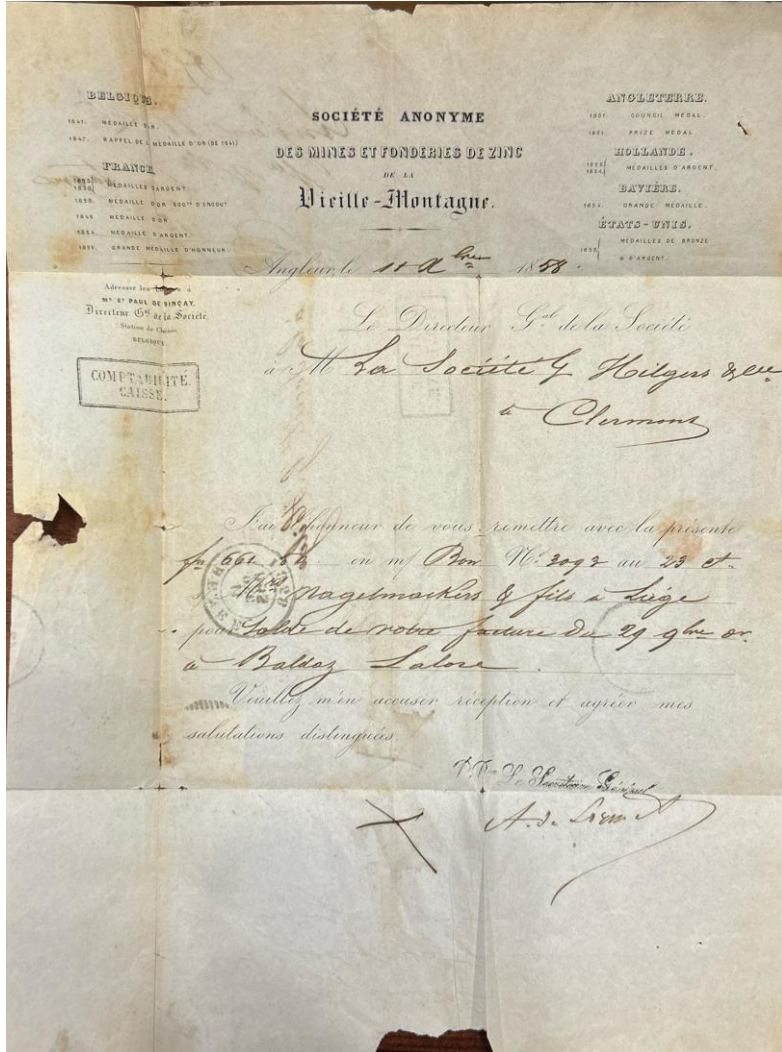 BELGIQUE.
1841. MÉDAILLE D'OR.
1847. RAPPEL DE LA MÉDAILLE D'OR (DE 1841)
FRANCE
MÉDAILLES D'ARGENT.
MÉDAILLE D'OR
1849 MÉDAILLE D'OR
MÉDAILLE D'ARGENT.
1855. GRANDE MÉDAILLE D'HONNEUR
SOCIÉTÉ ANONYME
DES MINES ET FONDERIES DE ZINC
DE LA
Vieille-Montagne.
ANGLETERRE.
1851. COUNCIL MEDAL.
1851. PRIZE MEDAL
HOLLANDE.
MÉDAILLES D'ARGENT.
BAVIÈRE.
1854. GRANDE MÉDAILLE.
ÉTATS-UNIS.
1853 MÉDAILLES DE BRONZE
& D'ARGENT.
Angleur, le 1858.
Adresser les à
Mr St PAUL DE SINÇAY,
Directeur Gal de la Société
Station de Chênée
BELGIQUE.
COMPTABILITÉ.
CAISSE.
Le Directeur Gal de la Société
à M La Société G Hilgers & Cie
à Clermont
J'ai l'honneur de vous remettre avec la présente
fr 661 en m/ Bon No 3092 au 23 ct
Nagelmackers & fils à Liége
pour Solde de votre facture du 29 9bre
à
Veuillez m'en accuser réception et agréer mes
salutations distinguées.
Le Secrétaire Général